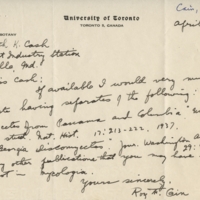 Cain,
University of Toronto
TORONTO 5, CANADA
BOTANY
April
K. Cash
Industry Station
Md.
Cash:
If available I would very
having separates of the following:
from Panama and Colombia"
Nat. Hist. 17:213-222, 1937.
Georgia discomycetes. Jour. Washington
other publications that you may have
mycologia.
Yours sincerely,
Roy F. Cain